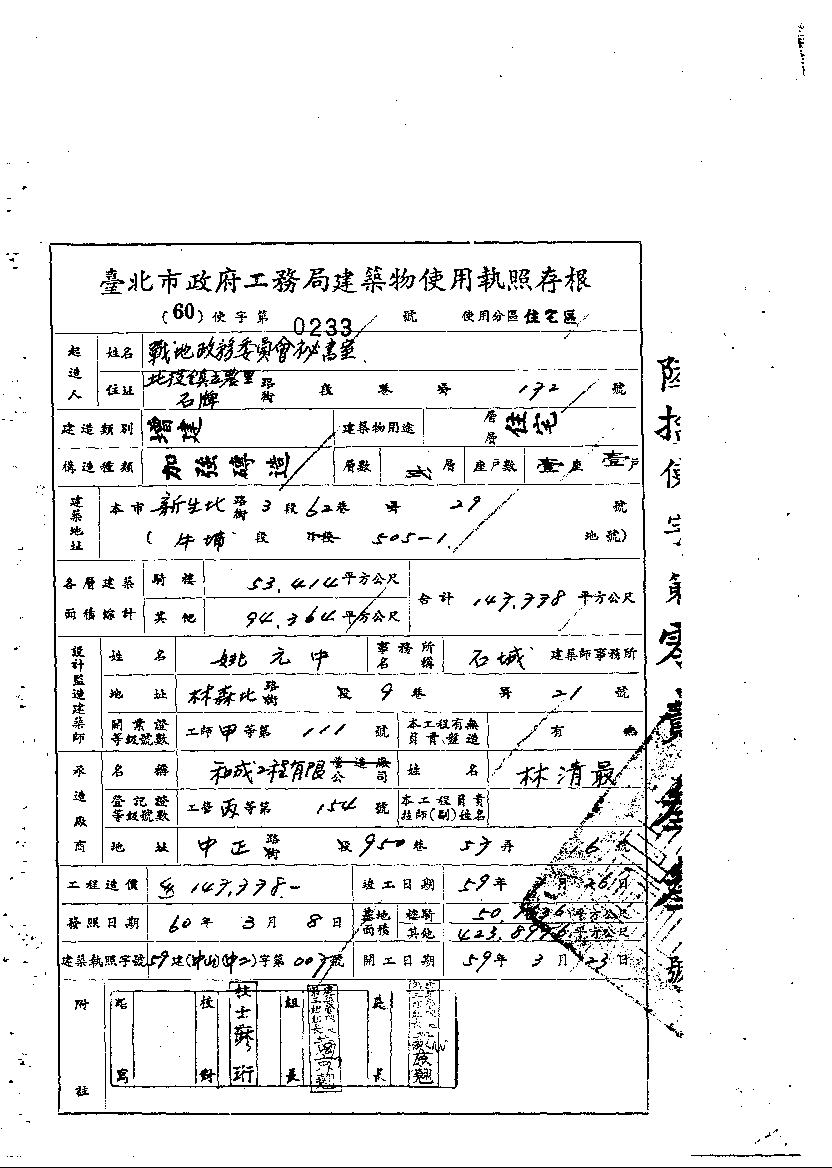 臺北市政府工務局建築物使用執照存根
(60)使字第 0233 號 使用分區 住宅區
起造人 姓名 戰地政務委員會秘書室
住址 北投鎮立農里石牌 路街 段 巷 弄 192 號
建造類別 增建 建築物用途 層層 住宅
構造種類 加強磚造 層數 貳 層 座戶數 壹座 壹戶
建築地址 本市 新生北 路街 3 段 62 巷 弄 29 號
(牛埔 段 小段 505-1 地號)
各層建築面積綜計 騎樓 53.414 平方公尺 合計 147.338 平方公尺
其他 94.364 平方公尺
設計監造建築師 姓名 姚元中 事務所名稱 石城 建築師事務所
地址 林森北 路街 段 9 巷 弄 21 號
開業證等級號數 工師 甲 等第 111 號 本工程有無負責監造 有 無
承造廠商 名稱 和成工程有限 營造廠公司 姓名 林清最
登記證等級號數 工營 丙 等第 154 號 本工程負責技師(副)姓名
地址 中正 路街 段 950 巷 53 弄 16 號
工程造價 147,338- 竣工日期 59 年 月 26 日
發照日期 60 年 3 月 8 日 基地面積 騎樓 平方公尺
其他 平方公尺
建築執照字號 59 建(中山)(中2)字第 007 號 開工日期 59 年 3 月 23 日
附註 起寫 校對 技士 蘇珩 組長 處長
陸拾使字第零貳叁叁號